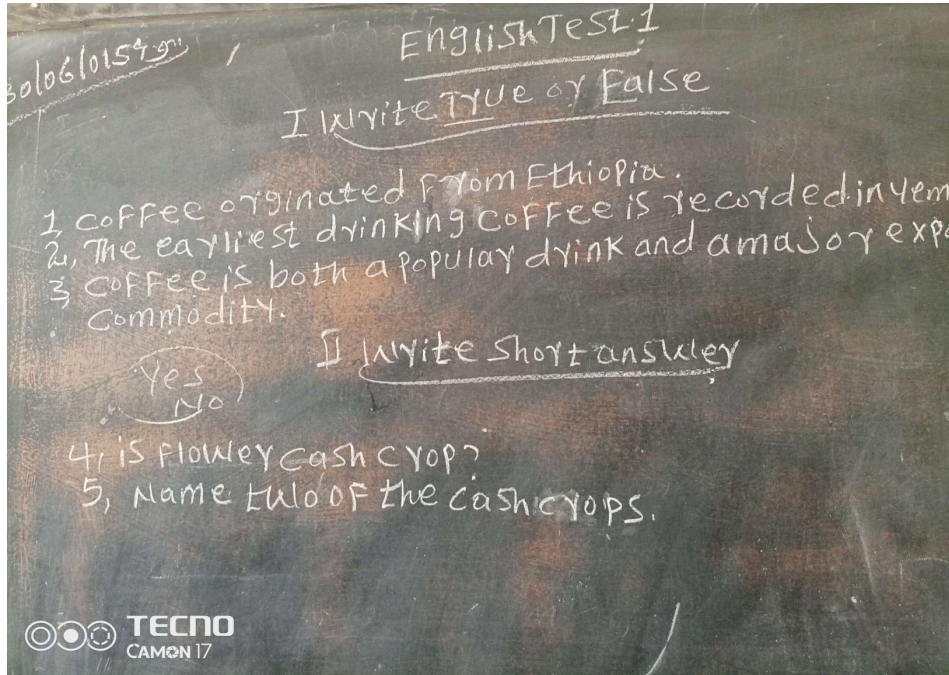 English Test.1
I Write True or False
1, Coffee orginated From Ethiopia.
2, The earliest drinking coffee is recorded in
3, Coffee is both a popular drink and a major
commodity.
II Write Short answer
Yes
No
4, is Flower cash crop?
5, Name two of the cash crops.
TECNO
CAMON 17